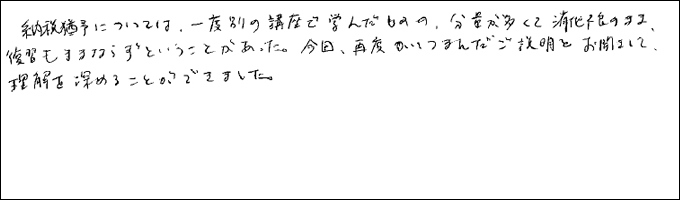 納税猶予については、一度別の講座で学んだものの、分量が多くて消化不良のまま、
復習もままならずということがあった。今回、再度かいつまんだご説明をお聞きして、
理解を深めることができました。